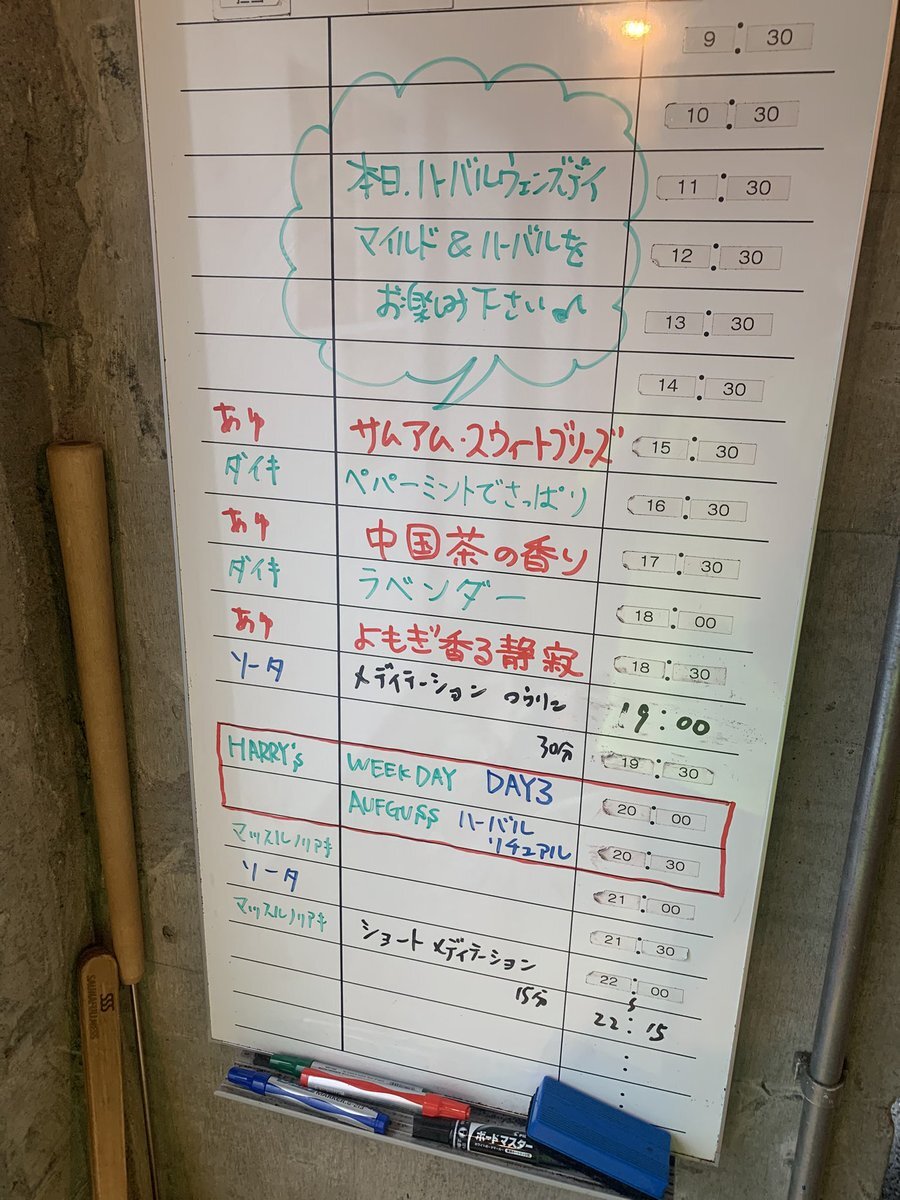 9:30
10:30
本日.ハーバルウェンズデイ 11:30
マイルド&ハーバルを 12:30
お楽しみ下さい♪ 13:30
14:30
あゆ サムアム・スウィートブリーズ 15:30
ダイキ ペパーミントでさっぱり 16:30
あゆ 中国茶の香り 17:30
ダイキ ラベンダー 18:00
あゆ よもぎ香る静寂 18:30
ソータ メディテーション ロウリュ 19:00
30分 19:30
HARRY's WEEKDAY DAY3 20:00
AUFGUSS ハーバル
リチュアル 20:30
マッスルノリアキ 21:00
ソータ 21:30
マッスルノリアキ ショートメディテーション 22:00
15分 22:15
ボードマスター